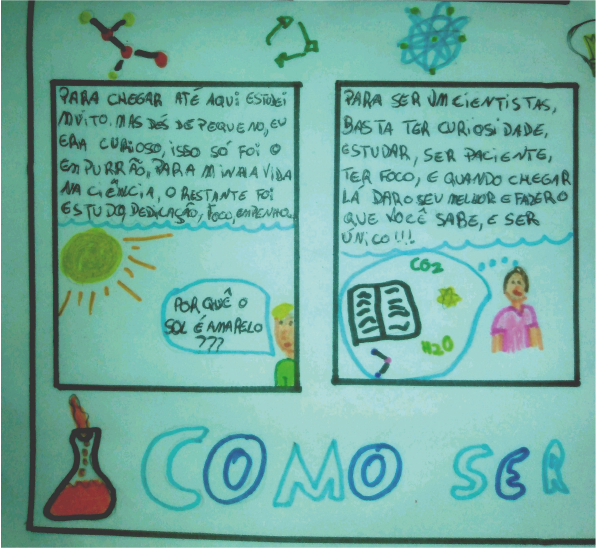 PARA CHEGAR ATÉ AQUI ESTUDEI
MUITO. MAS DÊS DE PEQUENO, EU
ERA CURIOSO, ISSO SÓ FOI O
EMPURRÃO, PARA MINHA VIDA
NA CIÊNCIA, O RESTANTE FOI
ESTUDO, DEDICAÇÃO, FOCO, EMPENHO...
POR QUÊ O
SOL É AMARELO
???
PARA SER UM CIENTISTAS,
BASTA TER CURIOSIDADE,
ESTUDAR, SER PACIENTE,
TER FOCO, E QUANDO CHEGAR
LÁ DAR O SEU MELHOR E FAZER O
QUE VOCÊ SABE, E SER
ÚNICO!!!
CO2
H2O
COMO SER